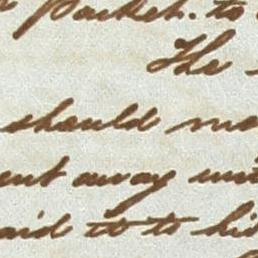 Packet. to
The
should me
ent away unt
aid to to his